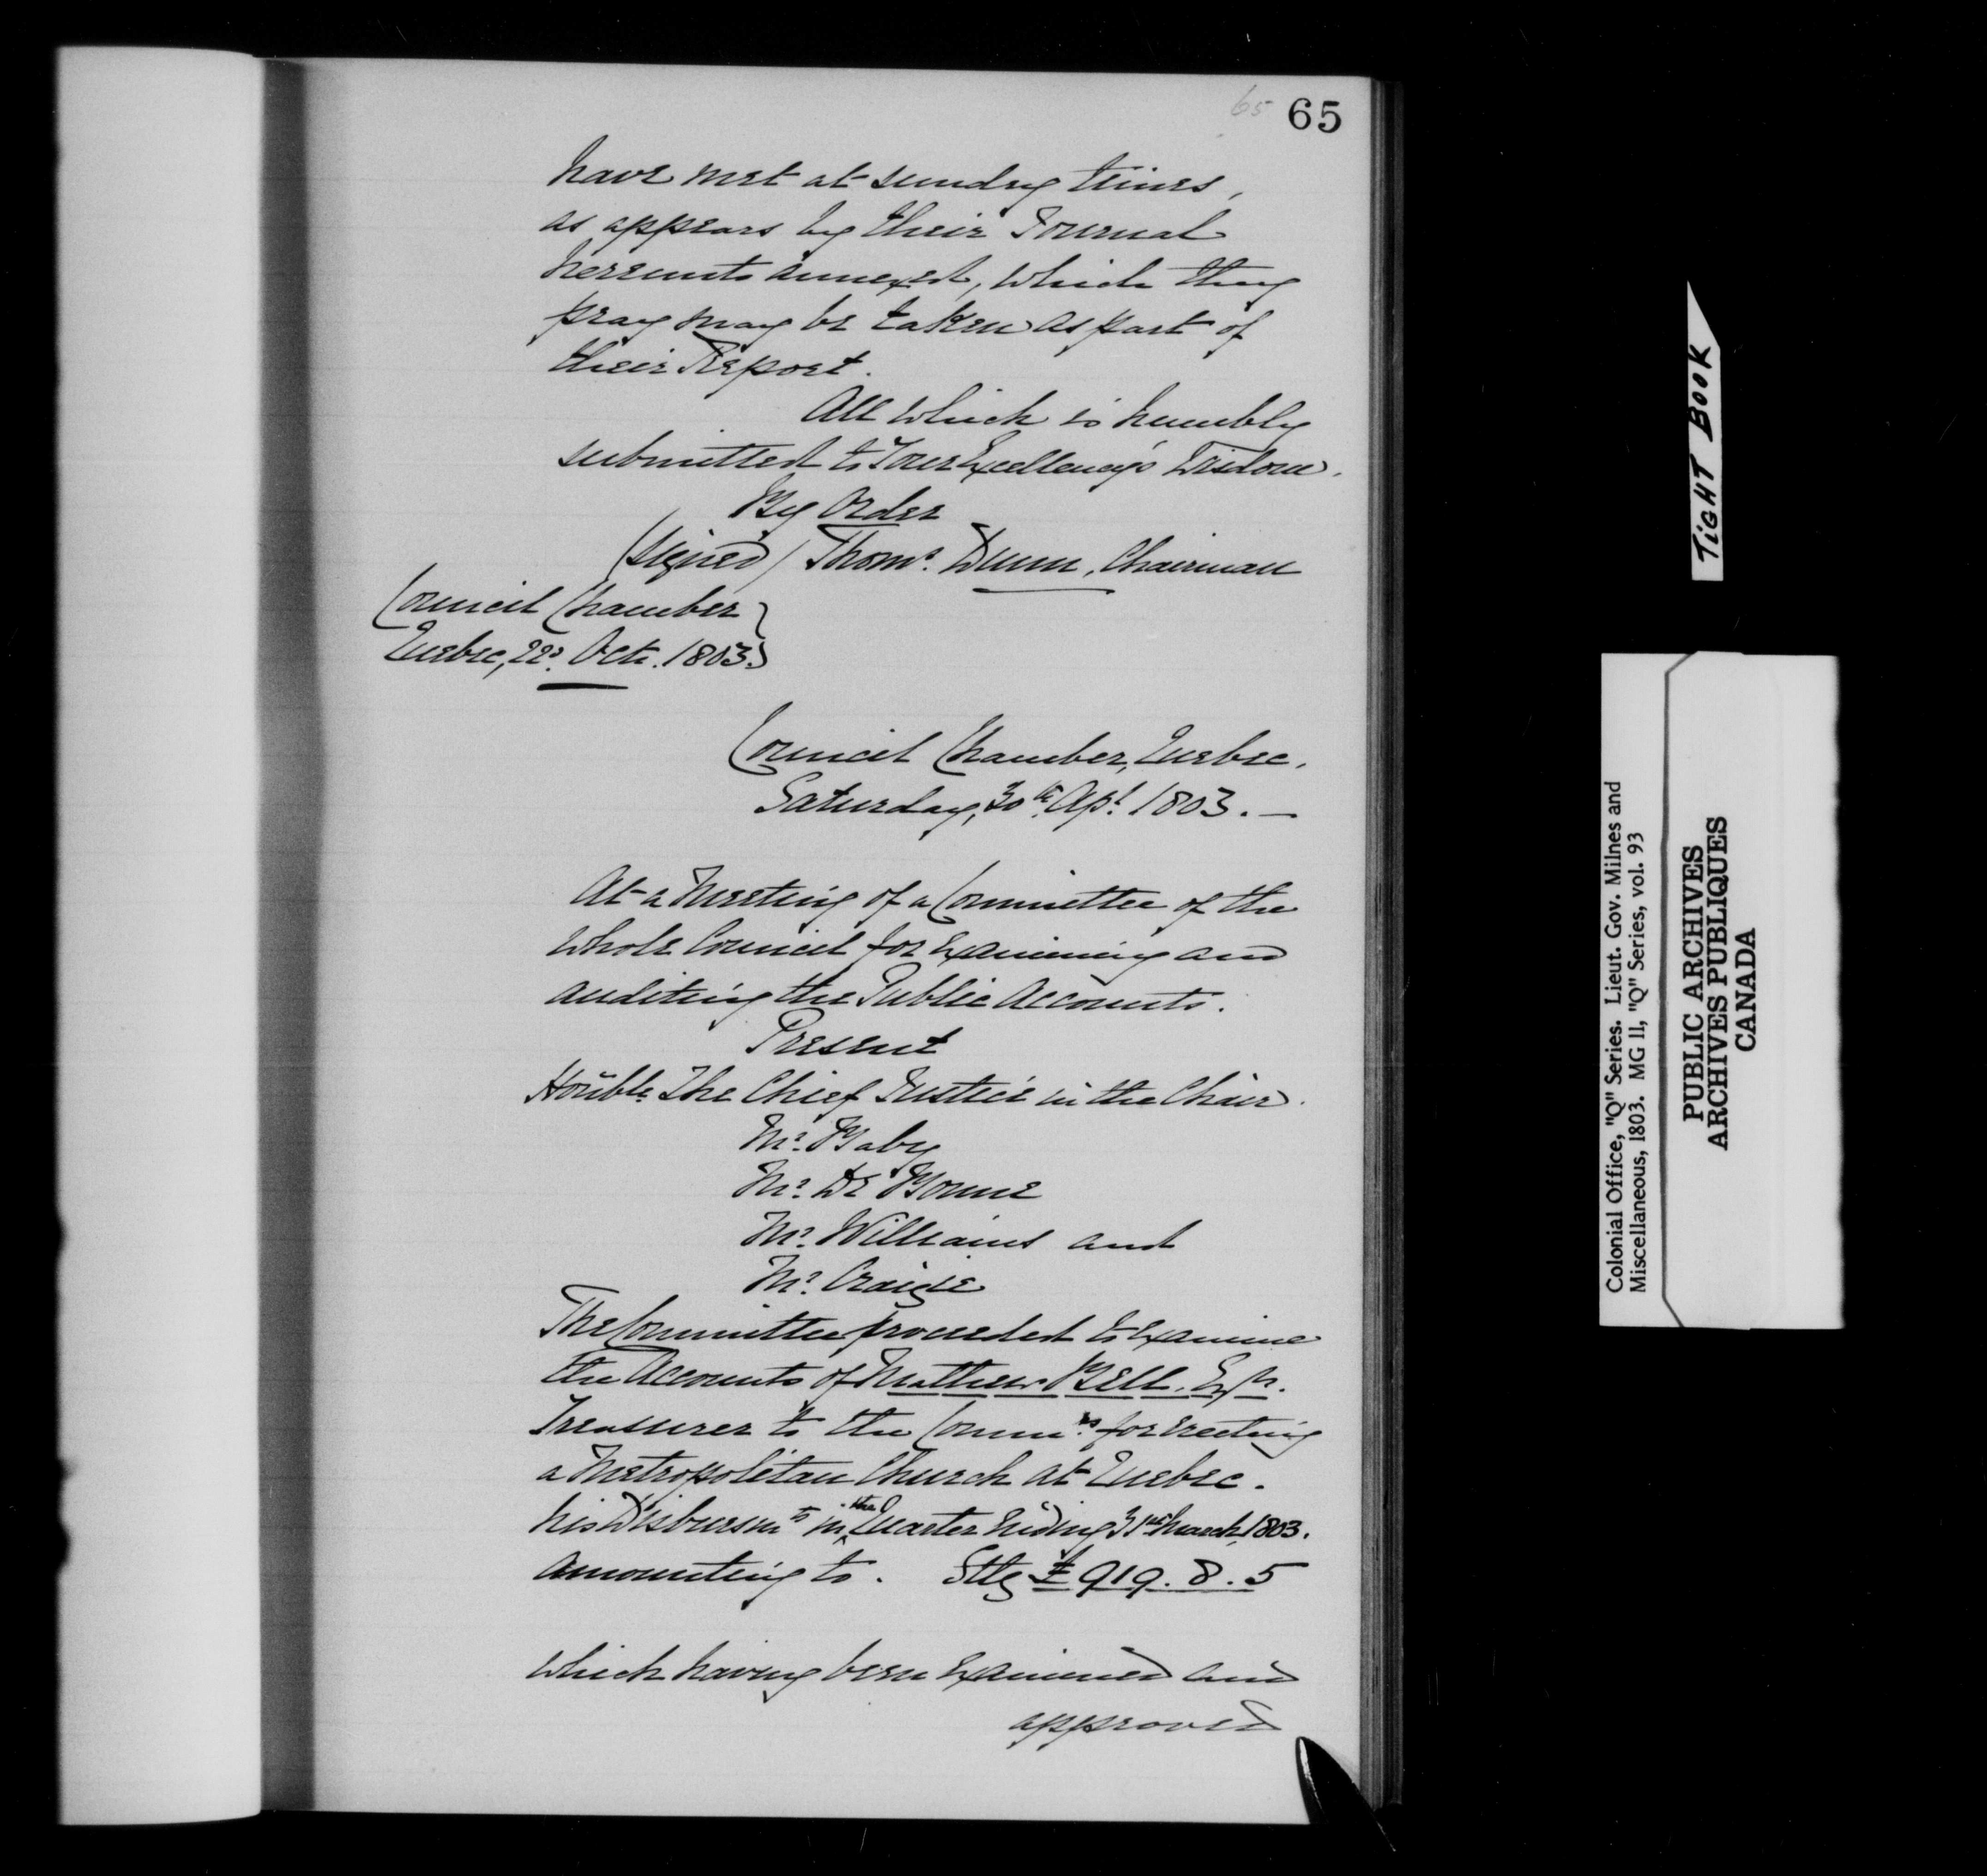 65 65
have met at sundry times,
as appears by their Journal
hereunto annexed, which they
pray may be taken as part of
their Report.
All which is humbly
submitted to Your Excellency's Wisdom.
By Order
(signed) Thoms. Dunn, Chairman
Council Chamber
Quebec, 22d. Octr. 1803.
Council Chamber, Quebec.
Saturday, 30th. Apl. 1803. —
At a Meeting of a Committee of the
whole Council for Examining and
auditing the Public Accounts.
Present
Honble. The Chief Justice in the Chair.
Mr. Baby
Mr. De Bonne
Mr. Williams and
Mr. Craigie
The Committee proceeded to Examine
the Accounts of Mathew Bell, Esqr.
Treasurer to the Commrs. for Erecting
a Metropolitan Church at Quebec.
his Disbursmts in the Quarter Ending 31st March, 1803.
Amounting to. Stlg £ 919. 8. 5
which having been Examined and
approved
TIGHT BOOK
Colonial Office, "Q" Series. Lieut. Gov. Milnes and
Miscellaneous, 1803. MG 11, "Q" Series, vol. 93
PUBLIC ARCHIVES
ARCHIVES PUBLIQUES
CANADA